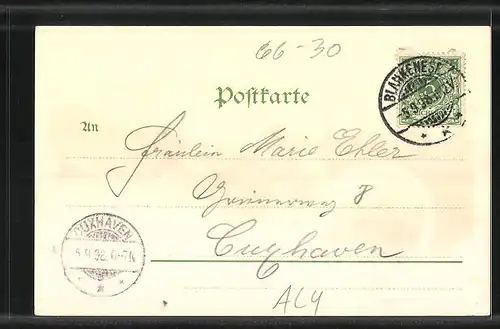 66-30
Postkarte
BLANKENESE
5.9.98
An
Fräulein Marie Ehler
Grünerweg 8
CUXHAVEN
5.9.98. 6-7N
Cuxhaven
ALY